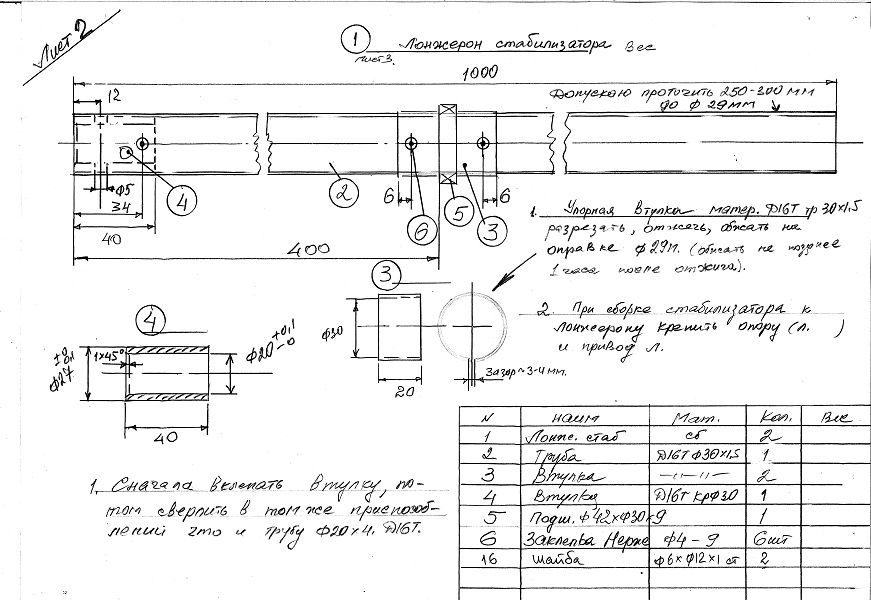 Лист 2
1 Лонжерон стабилизатора вес
лист 3.
1000
12
Допускаю проточить 250-300 мм
до ф 29 мм
4
2
6
5
3
6
6
Ф5
34
40
400
1. Упорная втулка матер. Д16Т тр 30х1.5
разрезать, отжечь, обжать на
оправке ф 29м. (обжать не позднее
1 часа после отжига).
3
Ф30
20
Зазор ~ 3-4 мм.
2. При сборке стабилизатора к
лонжерону крепить опору (л. )
и привод л.
4
Ф27 ±0 0,1
1х45°
Ф20 +0,1 -0
40
1. Сначала вклепать втулку, по-
том сверлить в том же приспособ-
лений что и трубу Ф20х4. Д16Т.
N наим Мат. Кол. Вес
1 Лонж. стаб сб 2
2 Труба Д16Т Ф30х1.5 1
3 Втулка —〃— 2
4 Втулка Д16Т кр Ф30 1
5 Подш. Ф42хФ30х9 1
6 Заклепка Нерже ф4-9 6шт
16 шайба ф6хФ12х1 ст 2